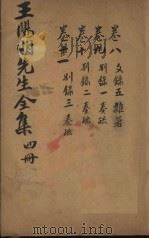 卷八 文錄五 雜著
卷九 別錄一 奏疏
卷十 別錄二 奏疏
卷十一 別錄三 奏疏
王陽明先生全集 四冊